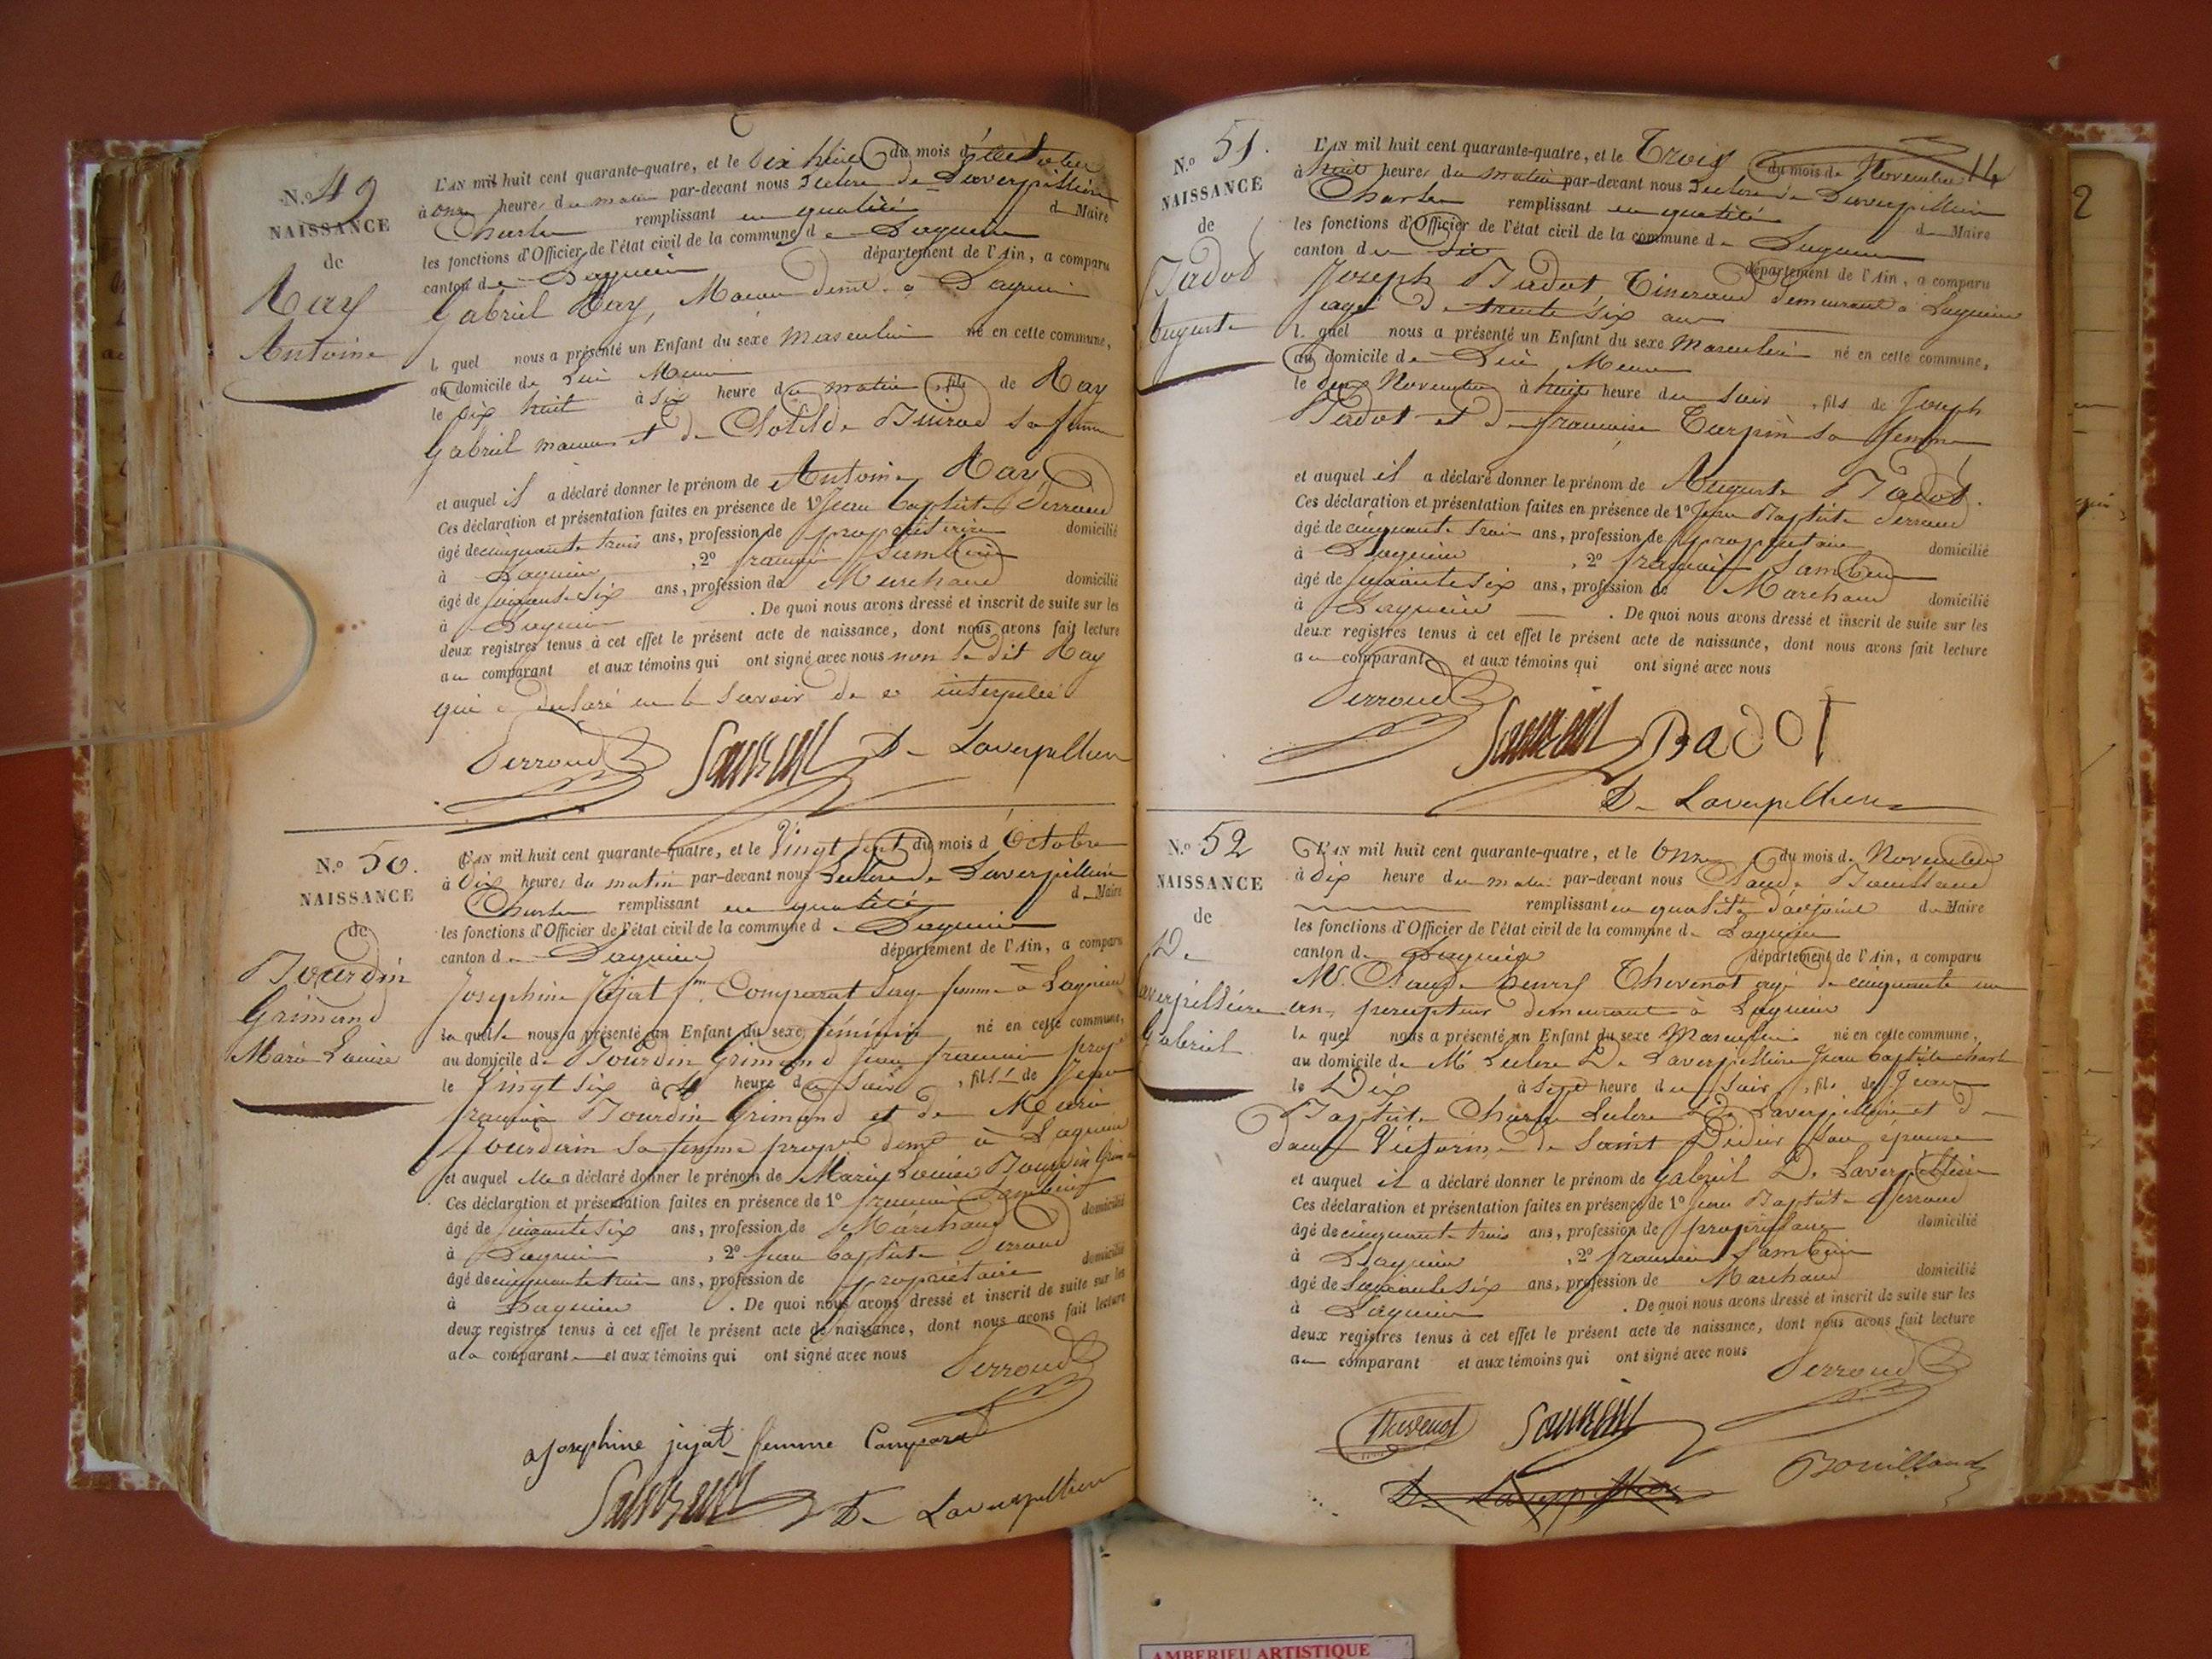 N.º 49
NAISSANCE
de
Ray
Antoine
L'AN mil huit cent quarante-quatre, et le Dix huit du mois d'Octobre
à onze heures du matin par-devant nous Leclerc de Laverpillière
Charles remplissant en qualité de Maire
les fonctions d'Officier de l'état civil de la commune de Lagnieu
canton de Lagnieu département de l'Ain, a comparu
Gabriel Ray, Macon demt. à Lagnieu
le quel nous a présenté un Enfant du sexe Masculin né en cette commune,
au domicile de Lui Meme
le dix huit à six heure du matin, fils de Ray
Gabriel macon et de Clotilde sa femme
et auquel il a déclaré donner le prénom de Antoine Ray
Ces déclaration et présentation faites en présence de 1º Jean Baptiste Perroud
âgé de cinquante trois ans, profession de propriétaire domicilié
à Lagnieu, 2º francois Sambein
âgé de soixante six ans, profession de Marchand domicilié
à Lagnieu. De quoi nous avons dressé et inscrit de suite sur les
deux registres tenus à cet effet le présent acte de naissance, dont nous avons fait lecture
au comparant et aux témoins qui ont signé avec nous non le dit Ray
qui a declaré ne le savoir de ce interpellé
Perroud D- Laverpilliere
N.º 50.
NAISSANCE
de
Bourdin
Grimand
Marie Louise
L'AN mil huit cent quarante-quatre, et le Vingt sept du mois d'Octobre
à Dix heures du matin par-devant nous Leclerc de Laverpillière
Charles remplissant en qualité de Maire
les fonctions d'Officier de l'état civil de la commune de Lagnieu
canton de Lagnieu département de l'Ain, a comparu
Josephine Jujat fme Comparat sage femme à Lagnieu
la quelle nous a présenté un Enfant du sexe féminin né en cette commune,
au domicile de Bourdin Grimand Jean francois propre
le Vingt six à heure du soir, fille de Jean
francois Bourdin Grimand et de Marie
Jourdain sa femme propre demt à Lagnieu
et auquel elle a déclaré donner le prénom de Marie Louise Bourdin Grimand
Ces déclaration et présentation faites en présence de 1º francois Sambein
âgé de soixante six ans, profession de Marchand domicilié
à Lagnieu, 2º Jean baptiste Perroud
âgé de cinquante trois ans, profession de propriétaire domicilié
à Lagnieu. De quoi nous avons dressé et inscrit de suite sur les
deux registres tenus à cet effet le présent acte de naissance, dont nous avons fait lecture
a la comparante et aux témoins qui ont signé avec nous
Perroud
Josephine jujat femme Comparat
D- Laverpilliere
14
N.º 51.
NAISSANCE
de
Badot
Auguste
L'AN mil huit cent quarante-quatre, et le Trois du mois de Novembre
à huit heures du matin par-devant nous Leclerc de Laverpillière
Charles remplissant en qualité de Maire
les fonctions d'Officier de l'état civil de la commune de Lagnieu
canton du dit département de l'Ain, a comparu
Joseph Badot Tisserand demeurant à Lagnieu
agé de trente six ans
le quel nous a présenté un Enfant du sexe Masculin né en cette commune,
au domicile de Lui Meme
le deux Novembre à huit heure du soir, fils de Joseph
Badot et de francoise Turpin sa femme
et auquel il a déclaré donner le prénom de Auguste Badot.
Ces déclaration et présentation faites en présence de 1º Jean Baptiste Perroud
âgé de cinquante trois ans, profession de propriétaire domicilié
à Lagnieu, 2º francois Sambein
âgé de soixante six ans, profession de Marchand domicilié
à Lagnieu. De quoi nous avons dressé et inscrit de suite sur les
deux registres tenus à cet effet le présent acte de naissance, dont nous avons fait lecture
au comparant et aux témoins qui ont signé avec nous
Perroud
BADOT
D- Laverpilliere
N.º 52
NAISSANCE
de
De
Laverpillière
Gabriel
L'AN mil huit cent quarante-quatre, et le Onze du mois de Novembre
à dix heure du matin par-devant nous Claude Bouilland
remplissant en qualité d'adjoint du Maire
les fonctions d'Officier de l'état civil de la commune de Lagnieu
canton de Lagnieu département de l'Ain, a comparu
Mr. Claude henry Thevenot agé de cinquante un
ans, percepteur demeurant à Lagnieu
le quel nous a présenté un Enfant du sexe Masculin né en cette commune,
au domicile de Mr Leclerc De Laverpillière Jean baptiste charles
le Dix à sept heure du soir, fils de Jean
Baptiste Charles Leclerc De Laverpillière et de
dame Victorine de Saint Didier son épouse
et auquel il a déclaré donner le prénom de Gabriel De Laverpillière
Ces déclaration et présentation faites en présence de 1º Jean Baptiste Perroud
âgé de cinquante trois ans, profession de propriétaire domicilié
à Lagnieu, 2º francois Sambein
âgé de Soixante six ans, profession de Marchand domicilié
à Lagnieu. De quoi nous avons dressé et inscrit de suite sur les
deux registres tenus à cet effet le présent acte de naissance, dont nous avons fait lecture
au comparant et aux témoins qui ont signé avec nous
Perroud
Thevenot
Bouilland
D- Laverpilliere
2
AMBERIEU ARTISTIQUE